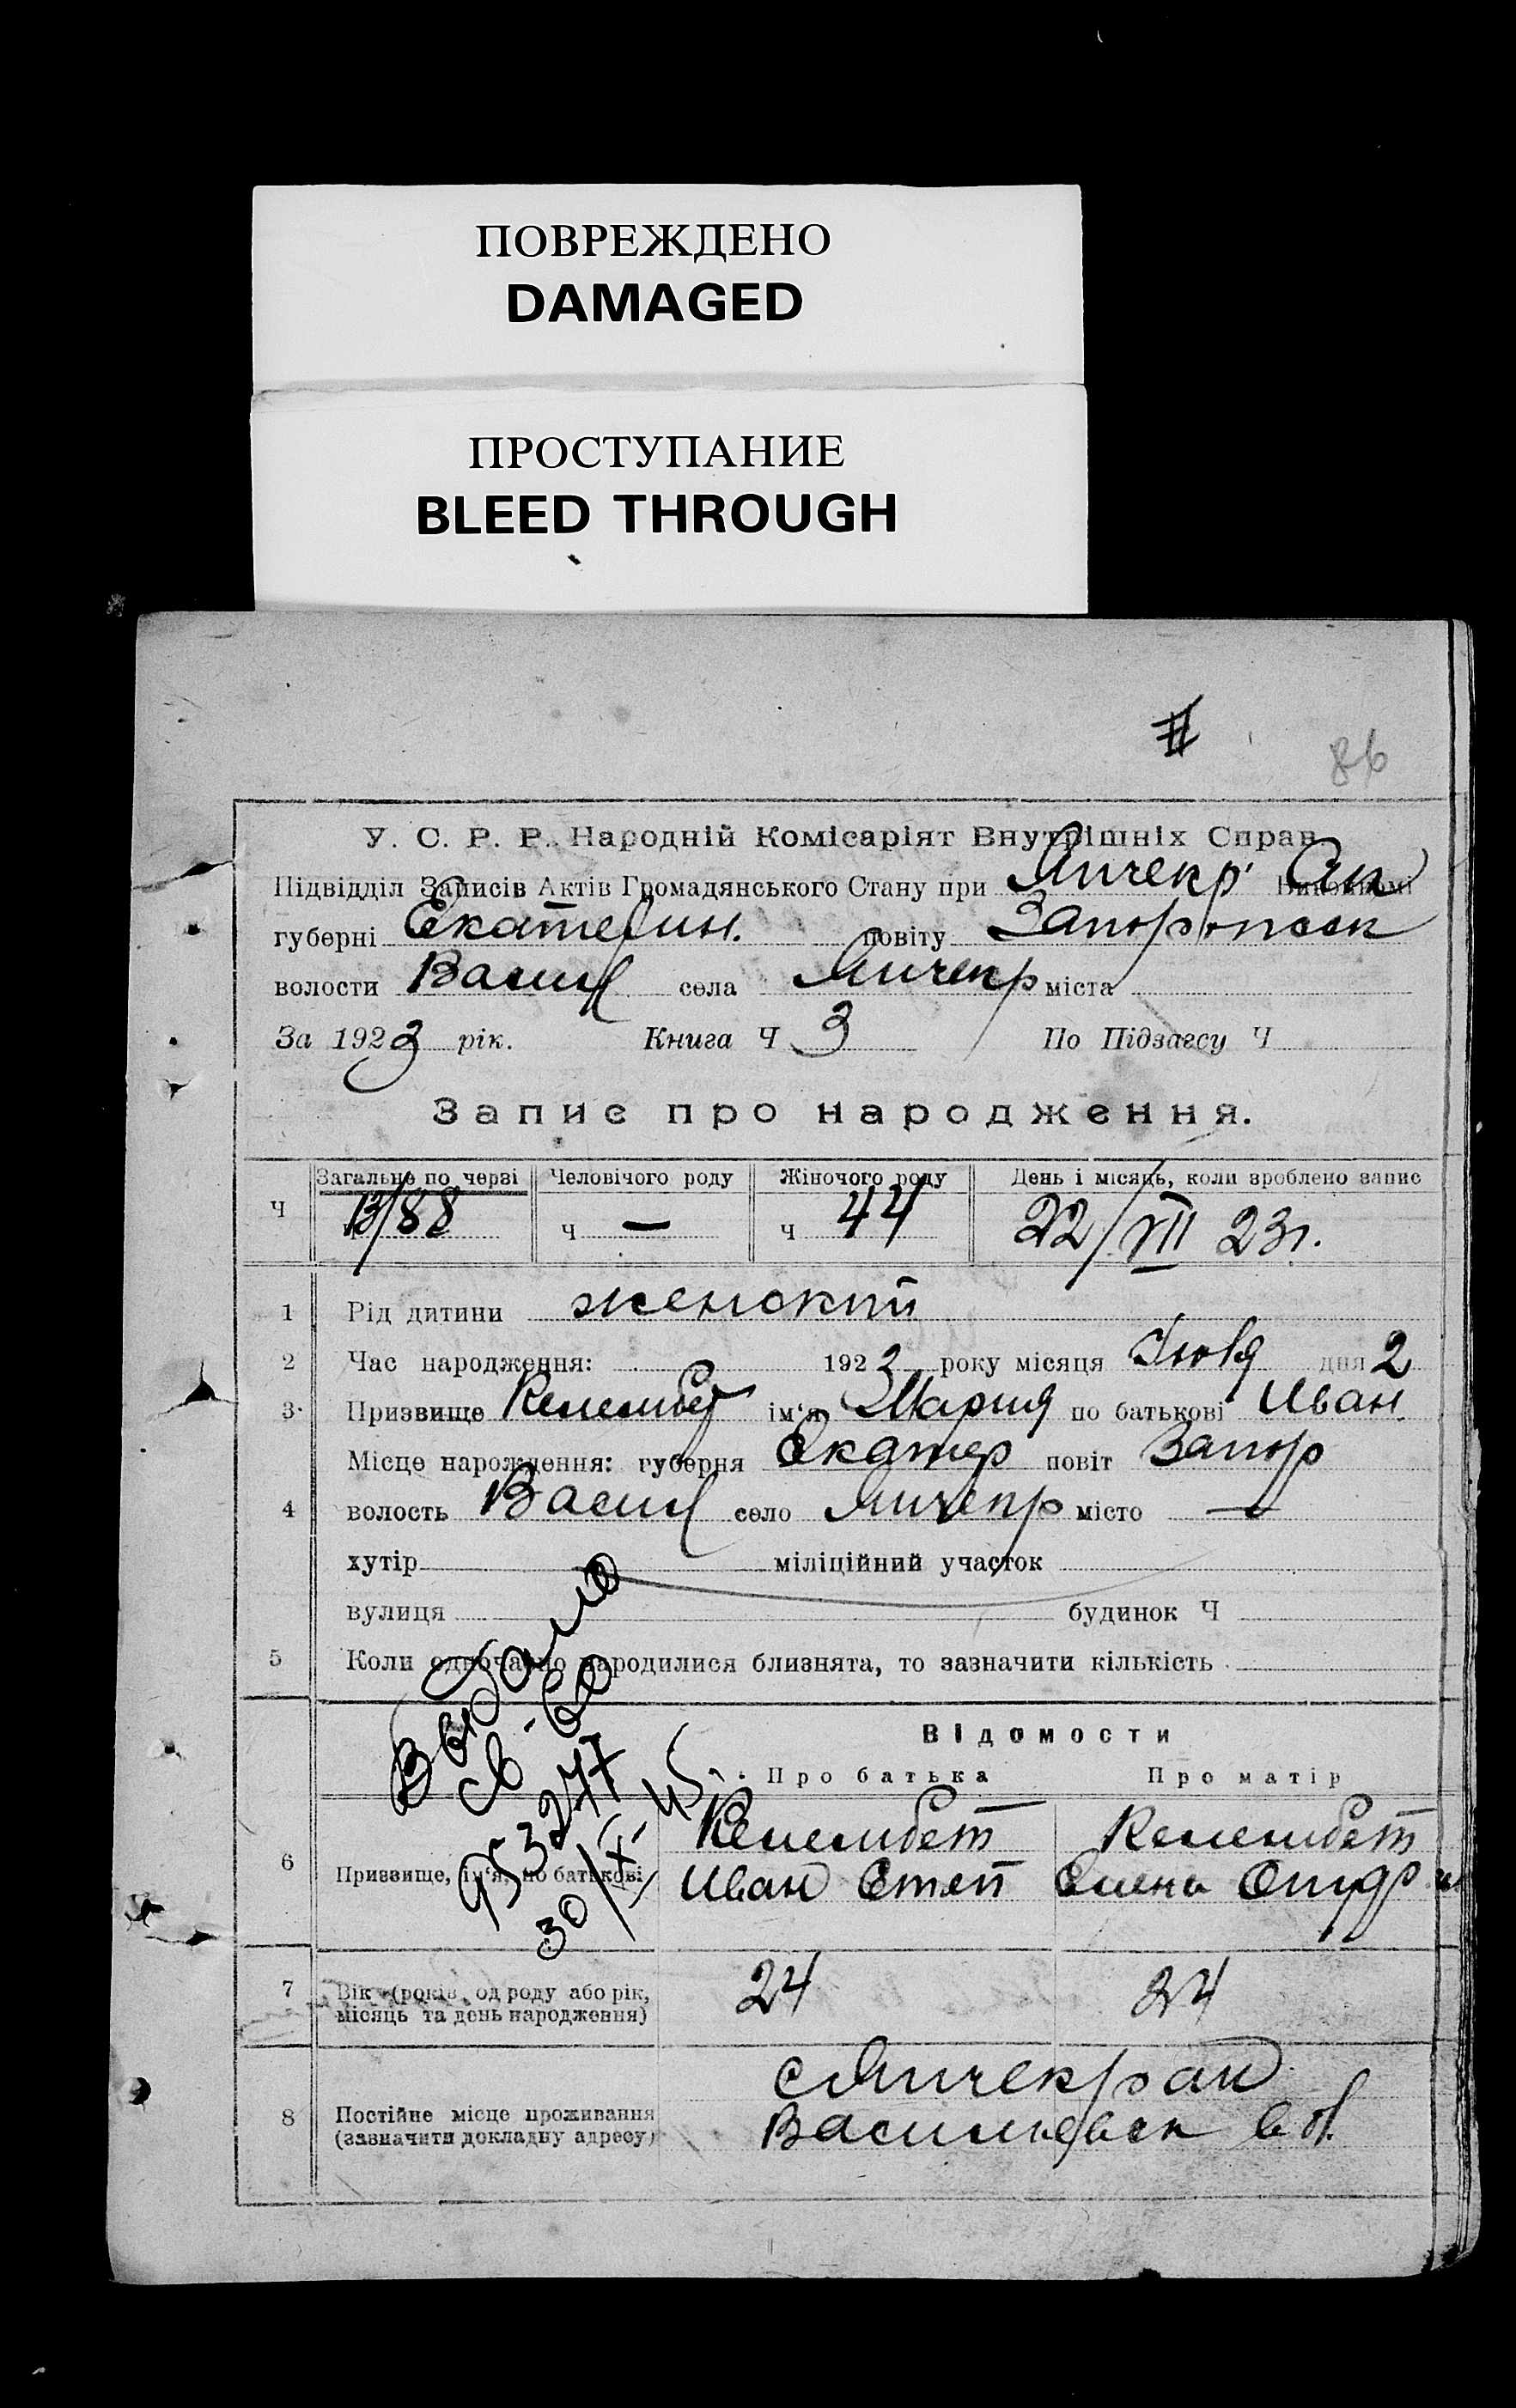 ПОВРЕЖДЕНО
DAMAGED
ПРОСТУПАНИЕ
BLEED THROUGH
86
У. С. Р. Р. Народній Комісаріят Внутрішніх Справ
Підвідділ Записів Актів Громадянського Стану при Янчекр
губерні Екатерин. повіту
волости Васил села Янчекр міста
За 1923 рік. Книга Ч 3 По Підзагсу Ч
Запис про народження.
Загальне по черзі Человічого роду Жіночого роду День і місяць, коли зроблено запис
Ч 13/88 Ч — Ч 44 22/VII 23г.
1 Рід дитини женский
2 Час народження: 1923 року місяця Июля дня 2
3 Призвище Келембет ім'я Мария по батькові Иван.
Місце народження: губерня Екатер повіт Запор
4 волость Васил село Янчекр місто —
хутір міліційний участок
вулиця будинок Ч
5 Коли одночасно народилися близнята, то зазначити кількість
Выдано
св-во
953277
30/IX-45
Відомости
Про батька Про матір
6 Призвище, ім'я, по батькові
Келембет Келембет
Иван Степ Елена
7 Вік (років, од роду або рік, місяць та день народження) 24 24
8 Постійне місце проживання (зазначити докладну адресу)
с Янчекрак
Васильевск вол.